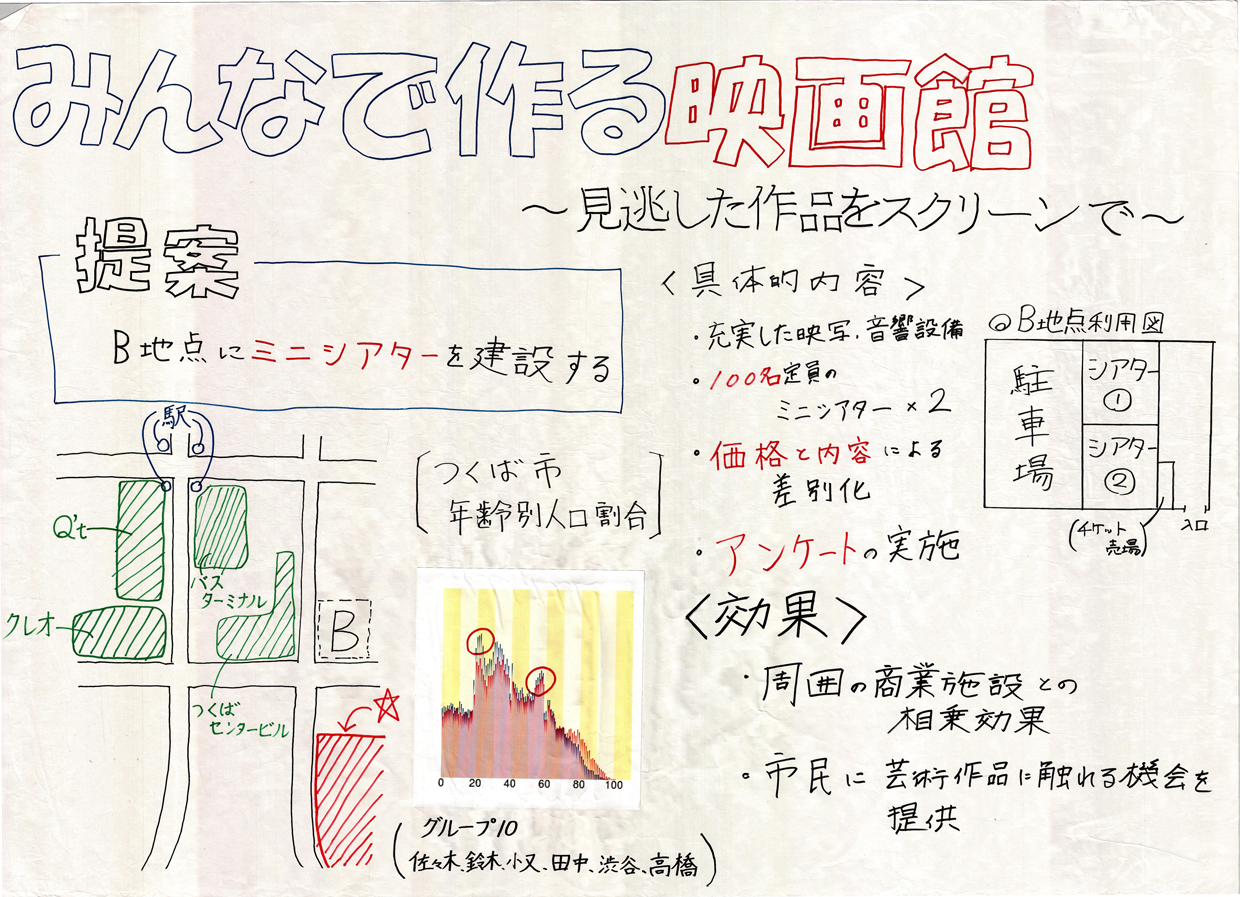 みんなで作る映画館
～見逃した作品をスクリーンで～
提案
B地点にミニシアターを建設する
駅
Q't
クレオ
バス
ターミナル
つくば
センタービル
B
☆
[つくば市
年齢別人口割合]
0 20 40 60 80 100
(グループ10
佐々木、鈴木、小又、田中、渋谷、高橋)
〈具体的内容〉
・充実した映写、音響設備
・100名定員の
ミニシアター×2
・価格と内容による
差別化
・アンケートの実施
◎B地点利用図
駐車場
シアター
①
シアター
②
(チケット
売場)
入口
〈効果〉
・周囲の商業施設との
相乗効果
・市民に芸術作品に触れる機会を
提供